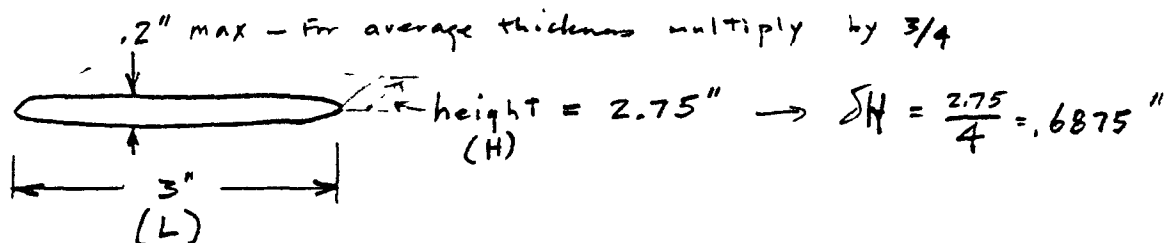 .2" max – For average thickness multiply by 3/4
height = 2.75" → δH = 2.75/4 = .6875"
(H)
3"
(L)